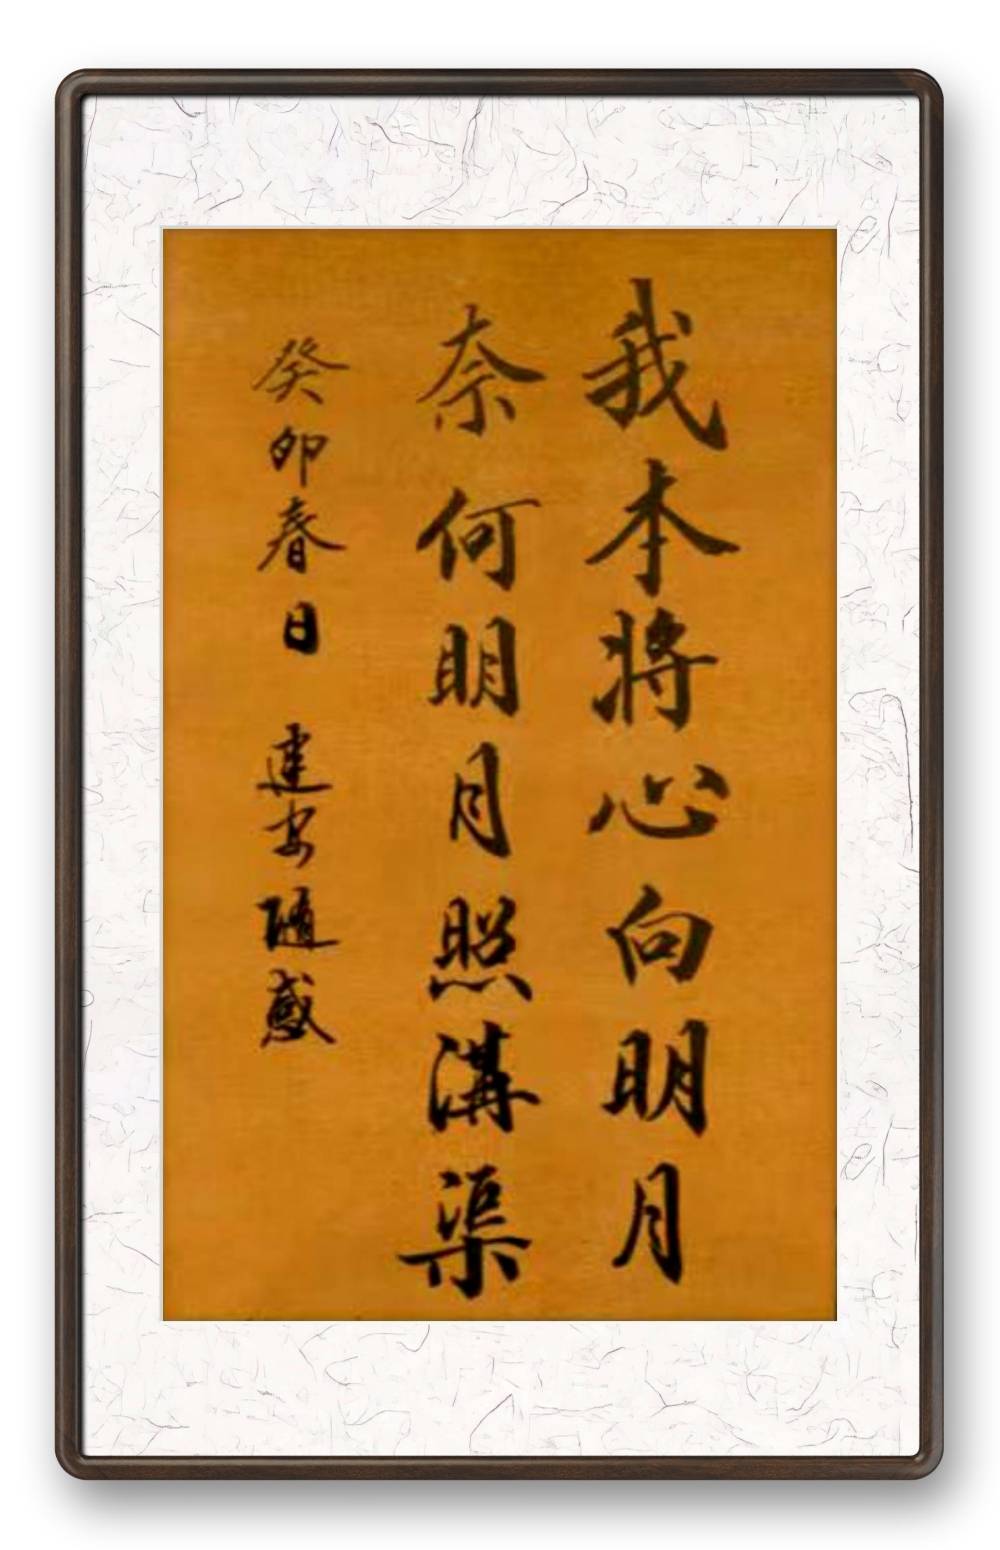 我本將心向明月
奈何明月照溝渠
癸卯春日 建安隨感